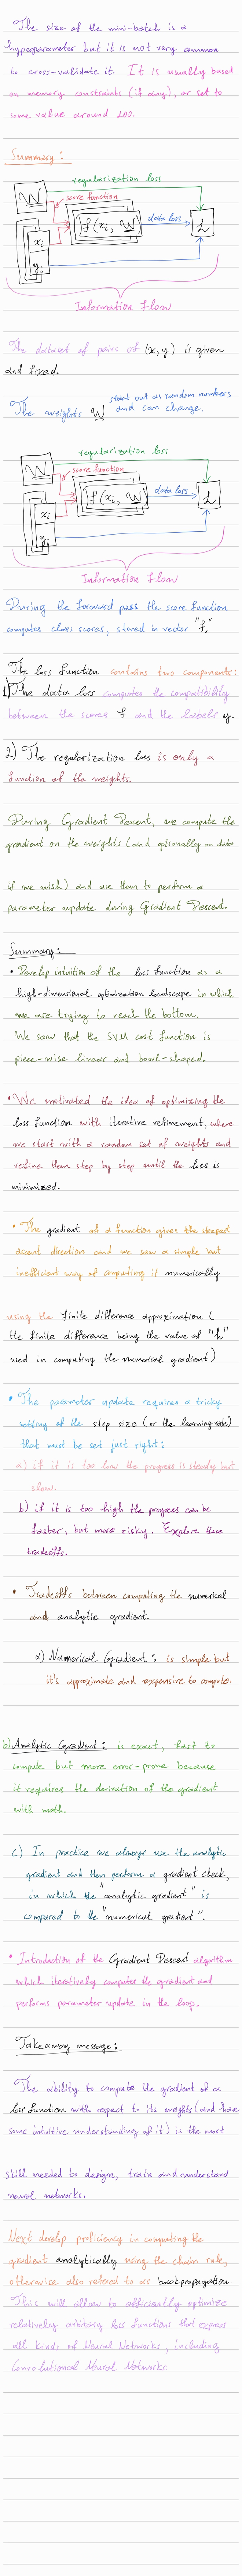 The size of the mini-batch is a
hyperparameter but it is not very common
to cross-validate it. It is usually based
on memory constraints (if any), or set to
some value around 100.
Summary:
regularization loss
W
score function
f(xi, W)
data loss
L
xi
yi
Information flow
The dataset of pairs of (x,y) is given
and fixed.
The weights W start out as random numbers
and can change.
regularization loss
W
score function
f(xi, W)
data loss
L
xi
yi
Information flow
During the forward pass the score function
computes class scores, stored in vector "f."
The loss function contains two components:
1) The data loss computes the compatibility
between the scores f and the labels y.
2) The regularization loss is only a
function of the weights.
During Gradient Descent, we compute the
gradient on the weights (and optionally on data
if we wish) and use them to perform a
parameter update during Gradient Descent.
Summary:
• Develop intuition of the loss function as a
high-dimensional optimization landscape in which
we are trying to reach the bottom.
We saw that the SVM cost function is
piece-wise linear and bowl-shaped.
• We motivated the idea of optimizing the
loss function with iterative refinement, where
we start with a random set of weights and
refine them step by step until the loss is
minimized.
• The gradient of a function gives the steepest
ascent direction and we saw a simple but
inefficient way of computing it numerically
using the finite difference approximation (
the finite difference being the value of "h"
used in computing the numerical gradient)
• The parameter update requires a tricky
setting of the step size (or the learning rate)
that must be set just right:
a) if it is too low the progress is steady but
slow.
b) if it is too high the progress can be
faster, but more risky. Explore these
tradeoffs.
• Tradeoffs between computing the numerical
and analytic gradient.
a) Numerical Gradient: is simple but
it's approximate and expensive to compute.
b) Analytic Gradient: is exact, fast to
compute but more error-prone because
it requires the derivation of the gradient
with math.
c) In practice we always use the analytic
gradient and then perform a gradient check,
in which the "analytic gradient" is
compared to the "numerical gradient".
• Introduction of the Gradient Descent algorithm
which iteratively computes the gradient and
performs parameter update in the loop.
Takeaway message:
The ability to compute the gradient of a
loss function with respect to its weights (and have
some intuitive understanding of it) is the most
skill needed to design, train and understand
neural networks.
Next develop proficiency in computing the
gradient analytically using the chain rule,
otherwise also refered to as backpropagation.
This will allow to efficiently optimize
relatively arbitrary loss functions that express
all kinds of Neural Networks, including
Convolutional Neural Networks.